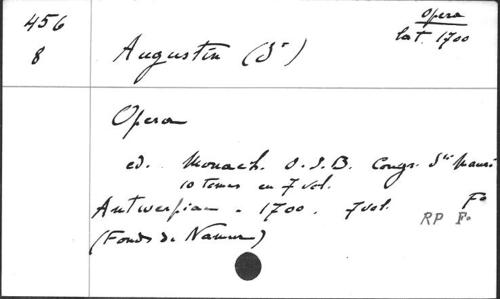 456
8
Opera
lat. 1700
Augustin (St)
Opera
ed. Monach. O.S.B. Congr. Sti Mauri
10 tomes en 7 vol.
Antwerpiae - 1700. 7 vol. Fo
RP Fo
(Fonds de Namur)